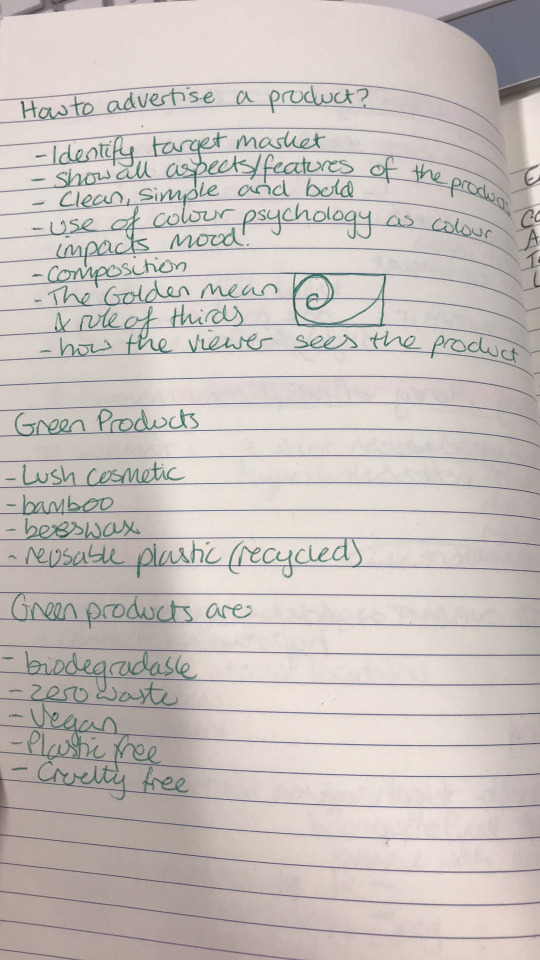 How to advertise a product?
- Identify target market
- show all aspects/features of the product
- Clean, simple and bold
- use of colour psychology as colour
impacts mood.
- composition
- The Golden mean
& rule of thirds
- how the viewer sees the product
Green Products
- Lush cosmetic
- bamboo
- beeswax
- reusable plastic (recycled)
Green products are
- biodegradable
- zero waste
- Vegan
- Plastic free
- Cruelty free